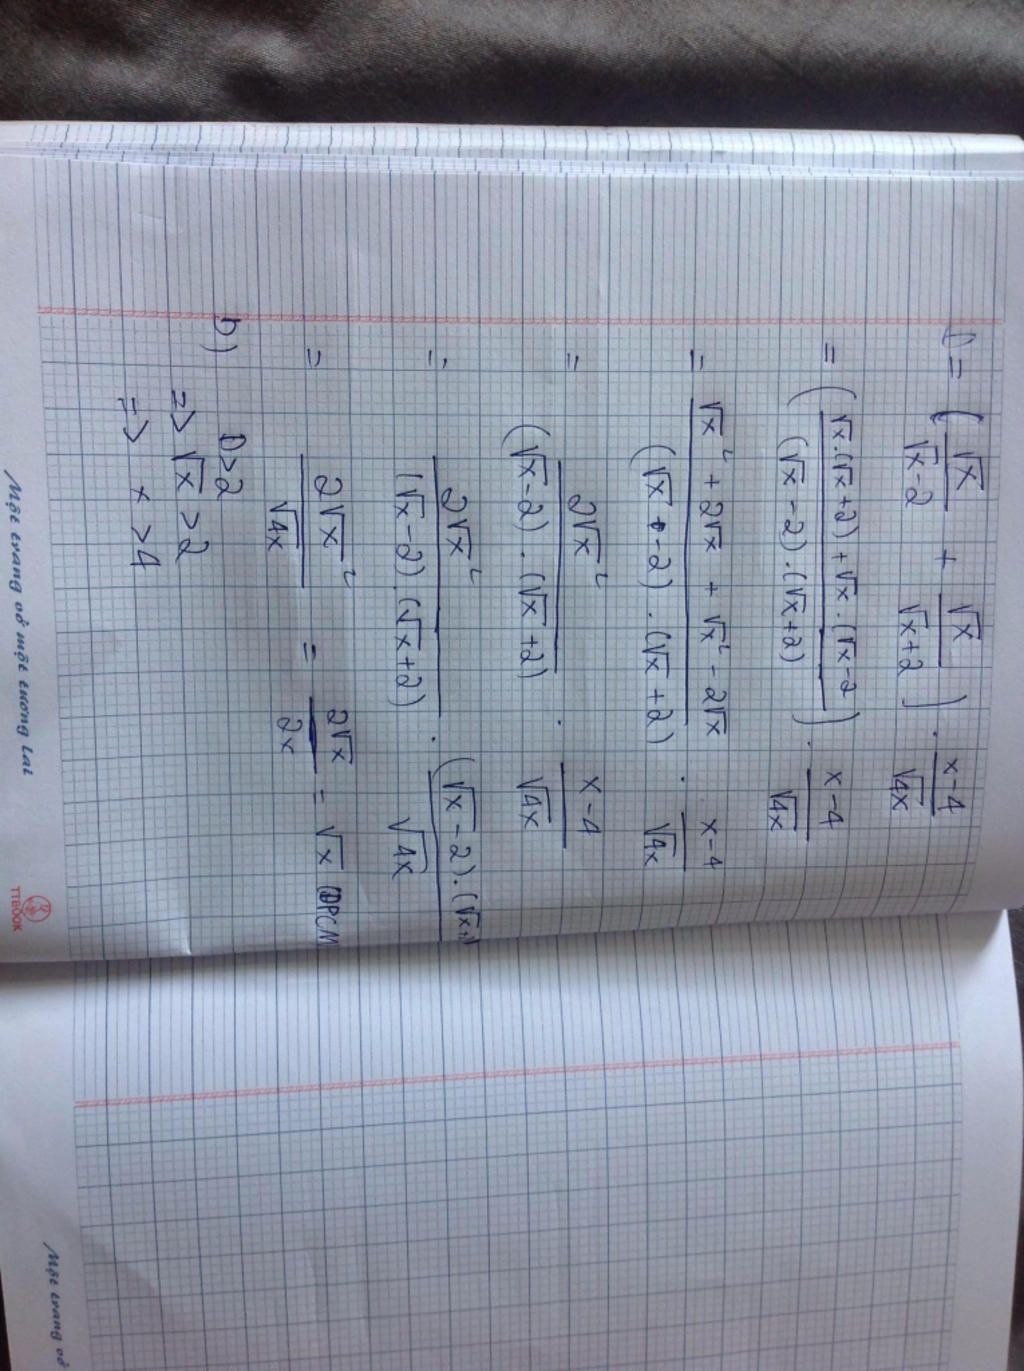 D = ( √x / √x-2 + √x / √x+2 ) . x-4 / √4x
= ( √x.(√x+2) + √x.(√x-2 / (√x-2).(√x+2) ) . x-4 / √4x
= √x² + 2√x + √x² - 2√x / (√x - 2).(√x+2) . x-4 / √4x
= 2√x² / (√x-2).(√x+2) . x-4 / √4x
= 2√x² / (√x-2).(√x+2) . (√x-2).(√x+ / √4x
= 2√x² / √4x = 2√x / 2x = √x ĐPCM
b) D>2
=> √x >2
=> x >4
Một trang vở một tương lai
TTBOOK
Một trang vở